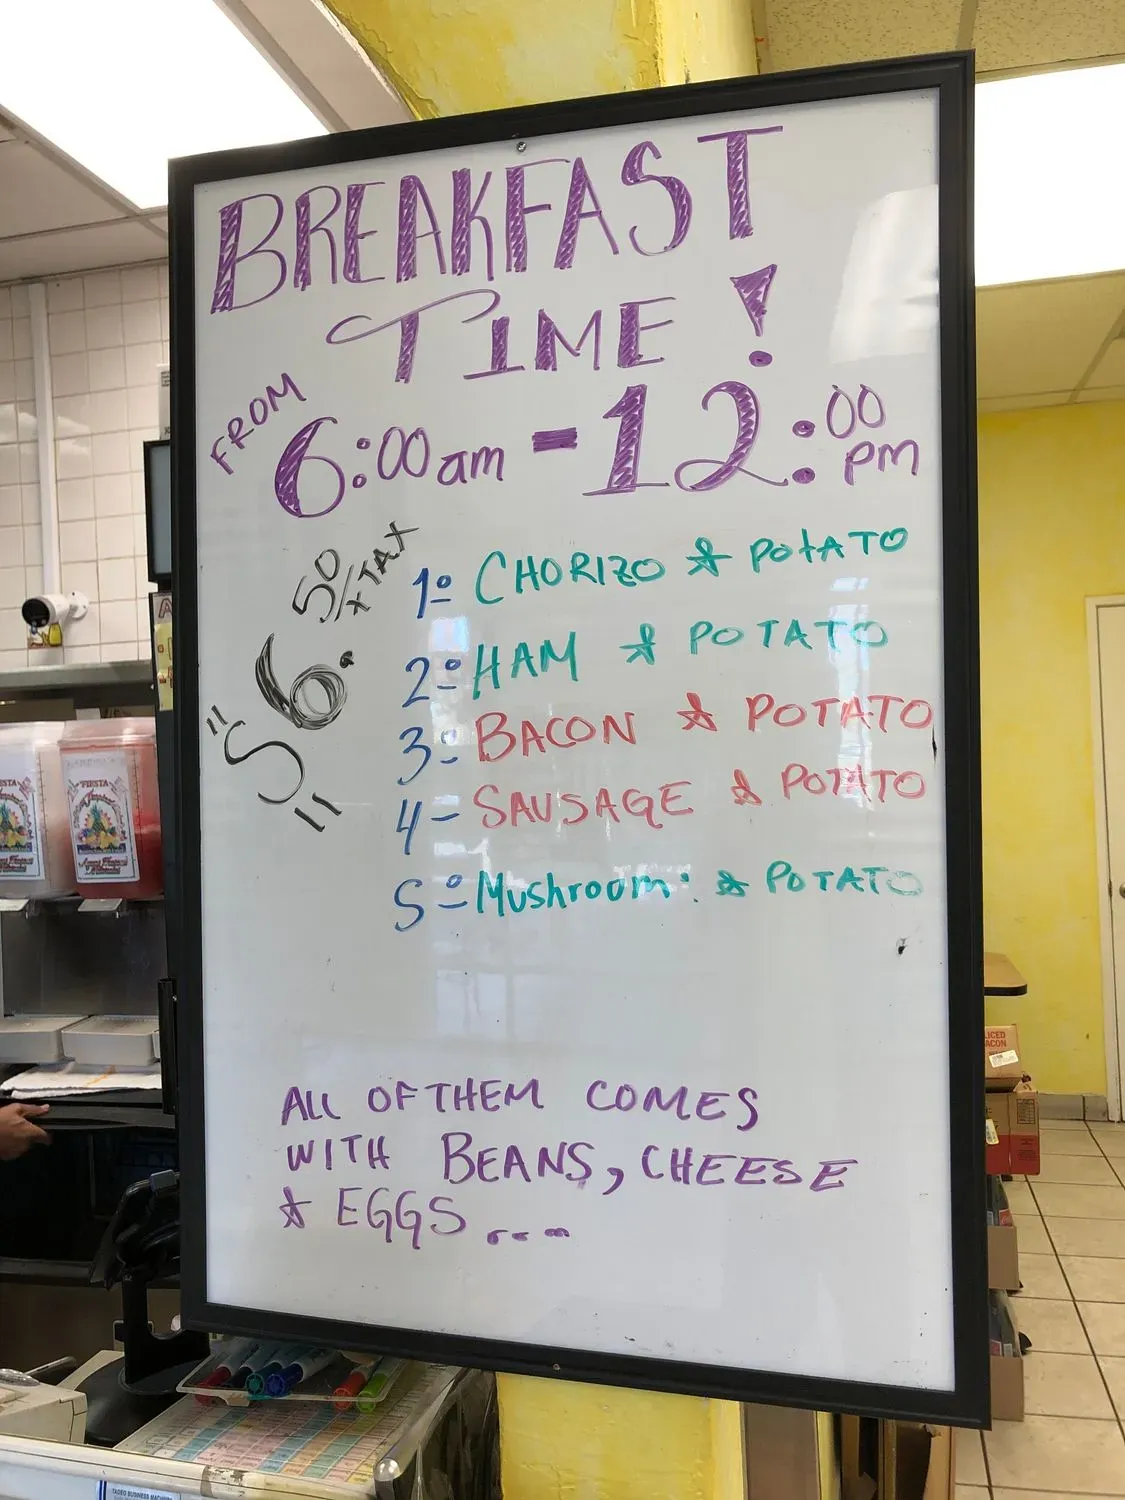 BREAKFAST
TIME!
FROM 6:00am - 12:00 pm
"$6.50/x TAX"
1º CHORIZO & POTATO
2º HAM & POTATO
3º BACON & POTATO
4- SAUSAGE & POTATO
5º Mushroom: & POTATO
ALL OF THEM COMES
WITH BEANS, CHEESE
& EGGS...
FIESTA
TADEO BUSINESS MACHINES